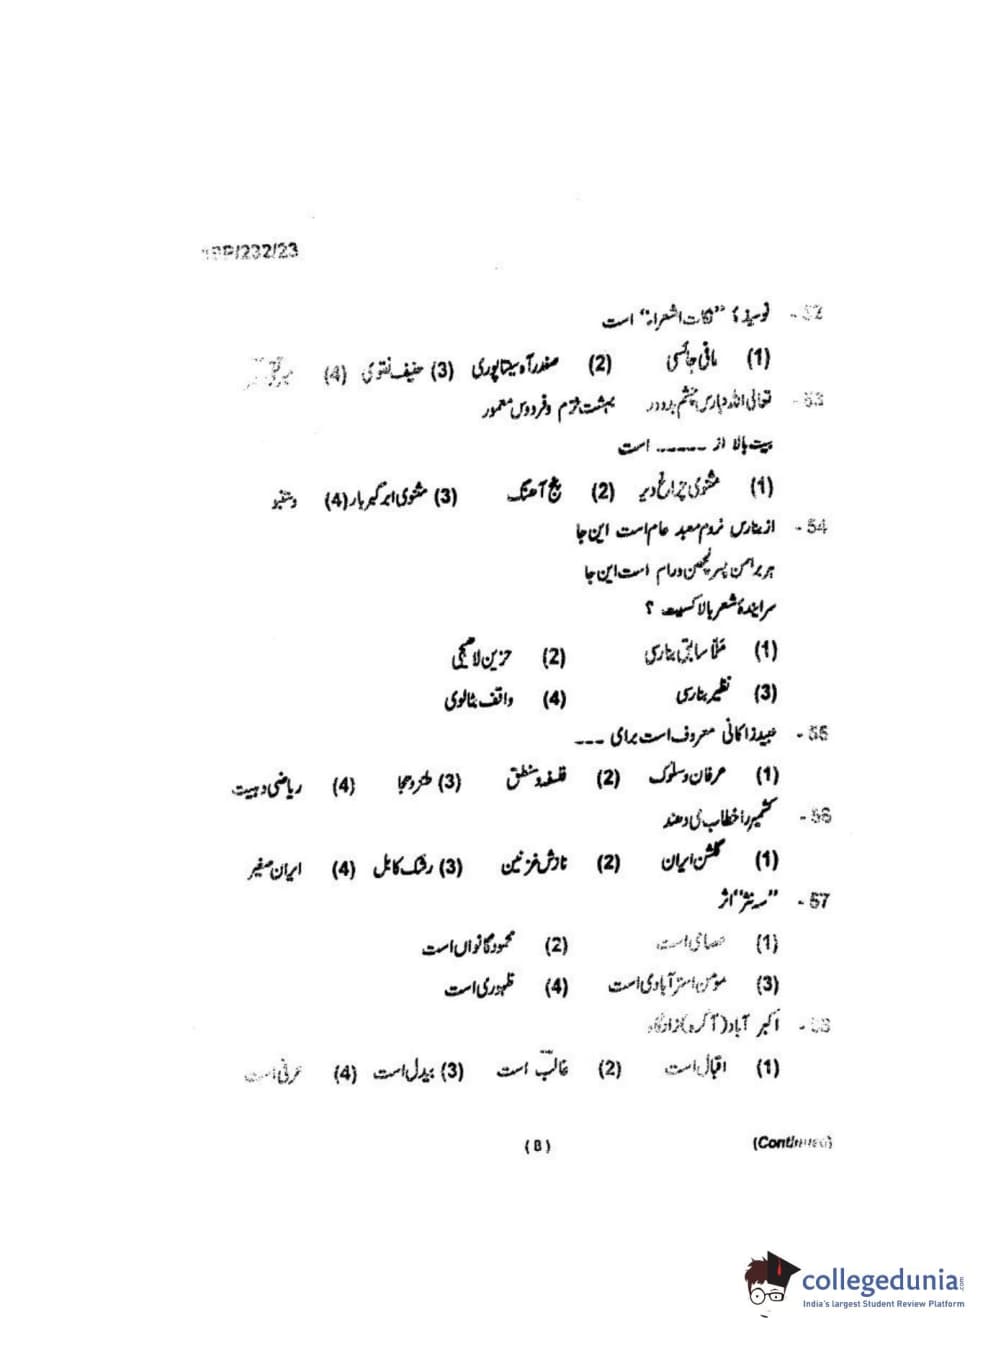 /232/23
52 - نویسندۂ "نکات الشعراء" است
(1) مانی جائسی (2) صفدر آہ سیتاپوری (3) حنیف نقوی (4) میر تقی میر
53 - تعالی اللہ بنارس چشم بد دور بہشت خرم و فردوس معمور
بیت بالا از ------ است
(1) مثنوی چراغ دیر (2) پنج آهنگ (3) مثنوی ابر گہر بار (4) دستنبو
54 - از بنارس نروم معبد عام است این جا
ہر برہمن پسر لچھمن و رام است این جا
سرایندۂ شعر بالا کسیت ؟
(1) ملّا سابق بنارسی (2) حزین لاهیجی
(3) نظیر بنارسی (4) واقف بٹالوی
55 - عبید زاکانی معروف است برای ---
(1) عرفان و سلوک (2) فلسفہ و منطق (3) طنز و هجا (4) ریاضی و ہیبت
56 - کشمیر را خطاب می دهند
(1) گلشن ایران (2) نازش غزنین (3) رشک کابل (4) ایران صغیر
57 - "سہ نثر" اثر
(1) است (2) محمود گانواں است
(3) مومن استرآبادی است (4) ظهوری است
58 - اکبر آباد (آگرہ) زادگاہ
(1) اقبال است (2) غالب است (3) بیدل است (4) عرفی است
(8)
(Continued)
collegedunia.com
India's largest Student Review Platform